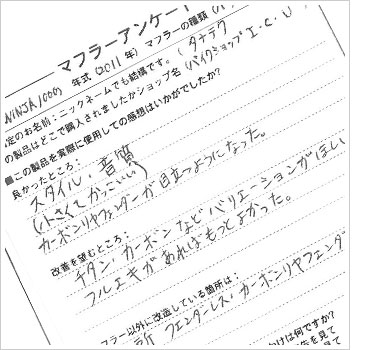 マフラーアンケート
NINJA1000 年式(2011年) マフラーの種類(
定のお名前：ニックネームでも結構です。(タナテク
の製品はどこで購入されましたかショップ名(バイクショップI.C.U
■この製品を実際に使用しての感想はいかがでしたか?
良かったところ：
スタイル・音質
(小さくてかっこいい)
カーボンリヤフェンダーが目立つようになった。
改善を望むところ：
チタン、カーボンなどバリエーションがほしい
フルエキがあればもっとよかった。
フラー以外に改造している箇所は：
フェンダーレス・カーボンリヤフェンダ
かけは何ですか?
告を見て
見て